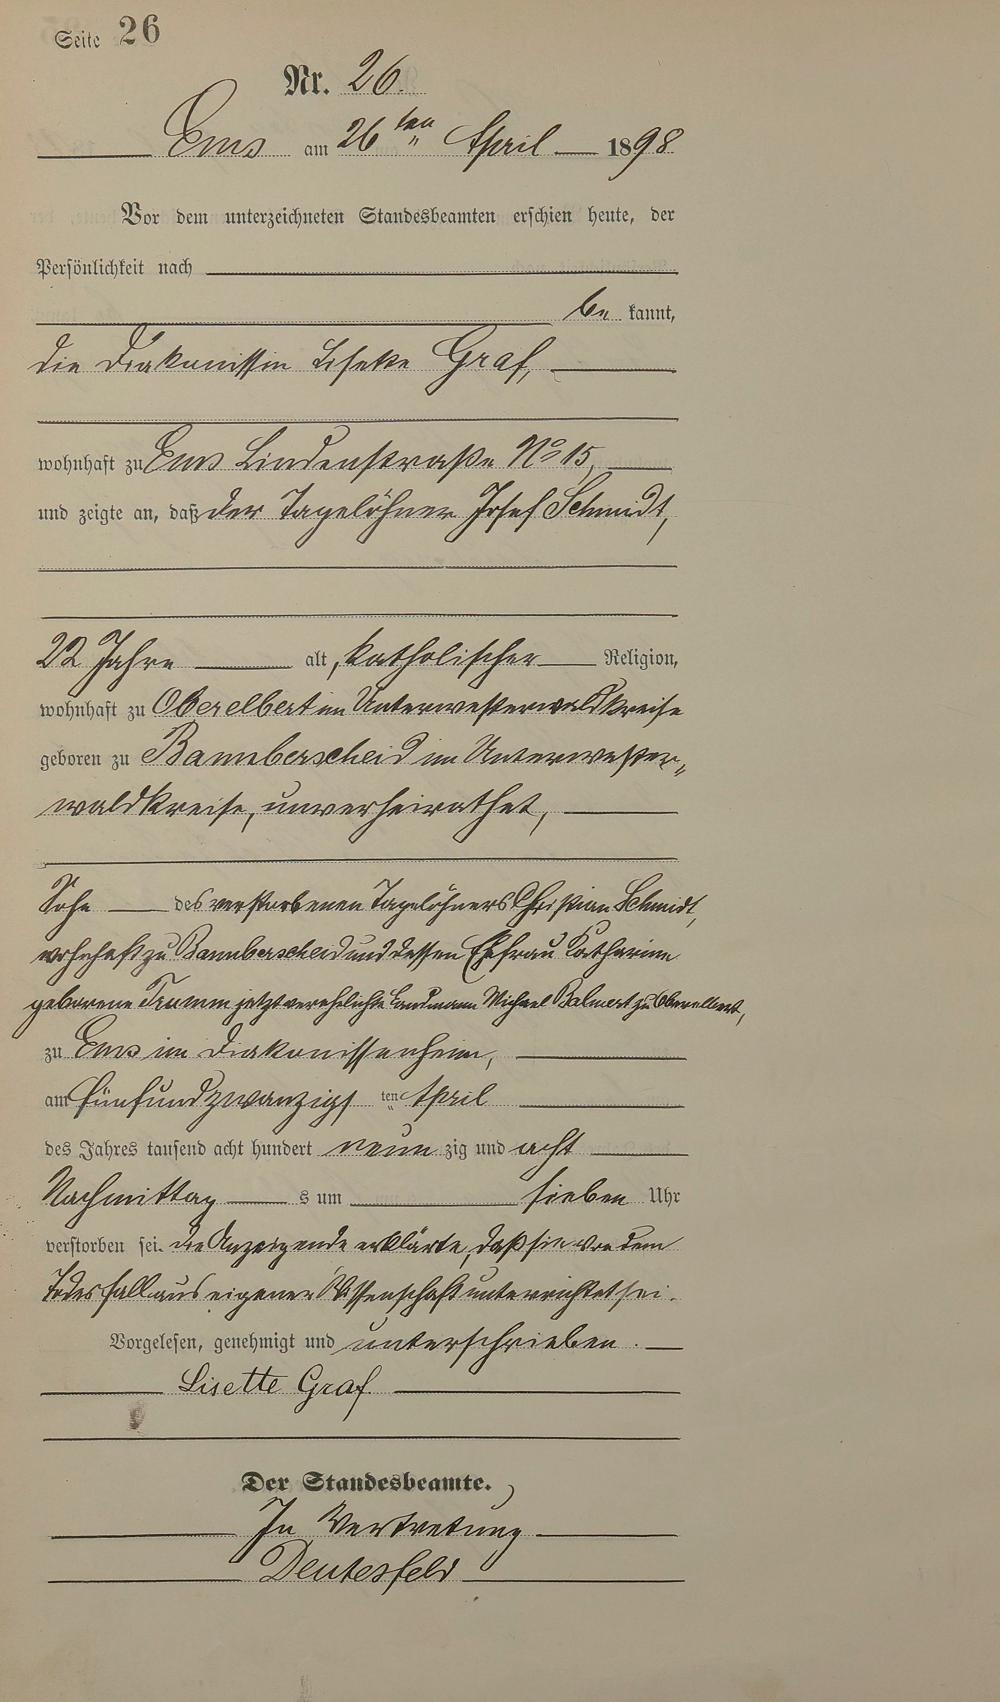 Seite 26
Nr. 26.
Ems am 26ten April 1898
Vor dem unterzeichneten Standesbeamten erschien heute, der
Persönlichkeit nach
be kannt,
die Diakonissin Lisette Graf,
wohnhaft zu Ems Lindenstraße No 15,
und zeigte an, daß der Tagelöhner Josef Schmidt,
22 Jahre alt, katholischer Religion,
wohnhaft zu Oberelbert im Unterwesterwaldkreise
geboren zu Bannberscheid im Unterwester-
waldkreise, unverheirathet,
Sohn des verstorbenen Tagelöhners Christian Schmidt,
wohnhaft zu Bannberscheid und dessen Ehefrau Katharina
geborene Trumm jetzt verehelichte Landmann Michael Balmert zu Oberelbert,
zu Ems im Diakonissenheim,
am fünfundzwanzigs ten April
des Jahres tausend acht hundert neun zig und acht
Nachmittag s um sieben Uhr
verstorben sei. die Anzeigende erklärte, daß sie von dem
Todesfall aus eigener Wissenschaft unterrichtet sei.
Vorgelesen, genehmigt und unterschrieben.
Lisette Graf
Der Standesbeamte.
In Vertretung
Deutesfeld